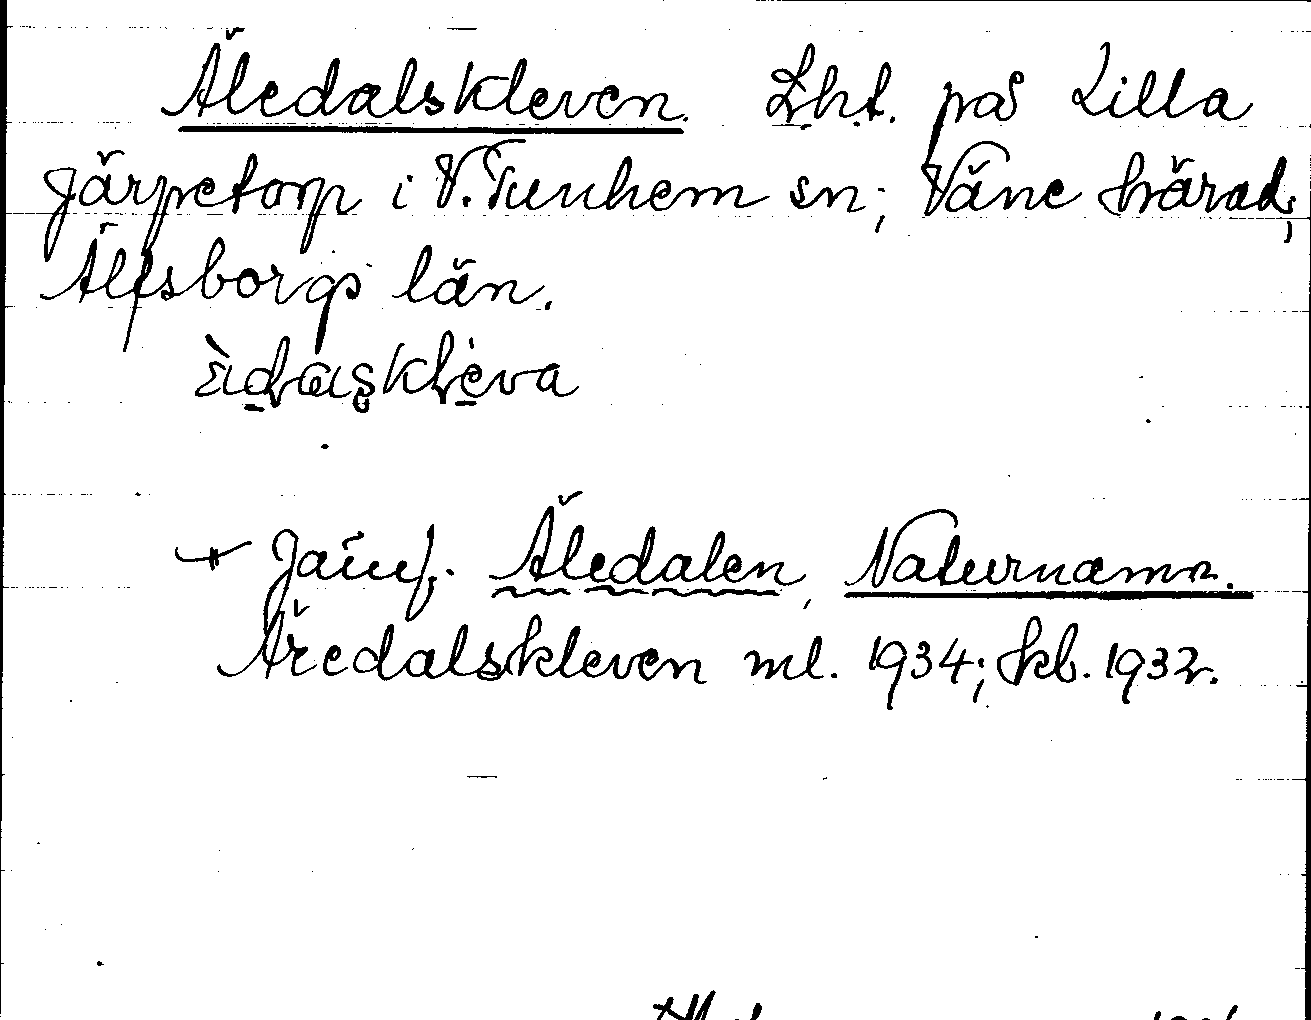 Äledalskleven. Lht. på Lilla
Järpetorp i V. Tunhem sn; Väne härad;
Älfsborgs län.
Jämf. Äledalen, Naturnamn.
Äredalskleven ml. 1934; kb. 1932.